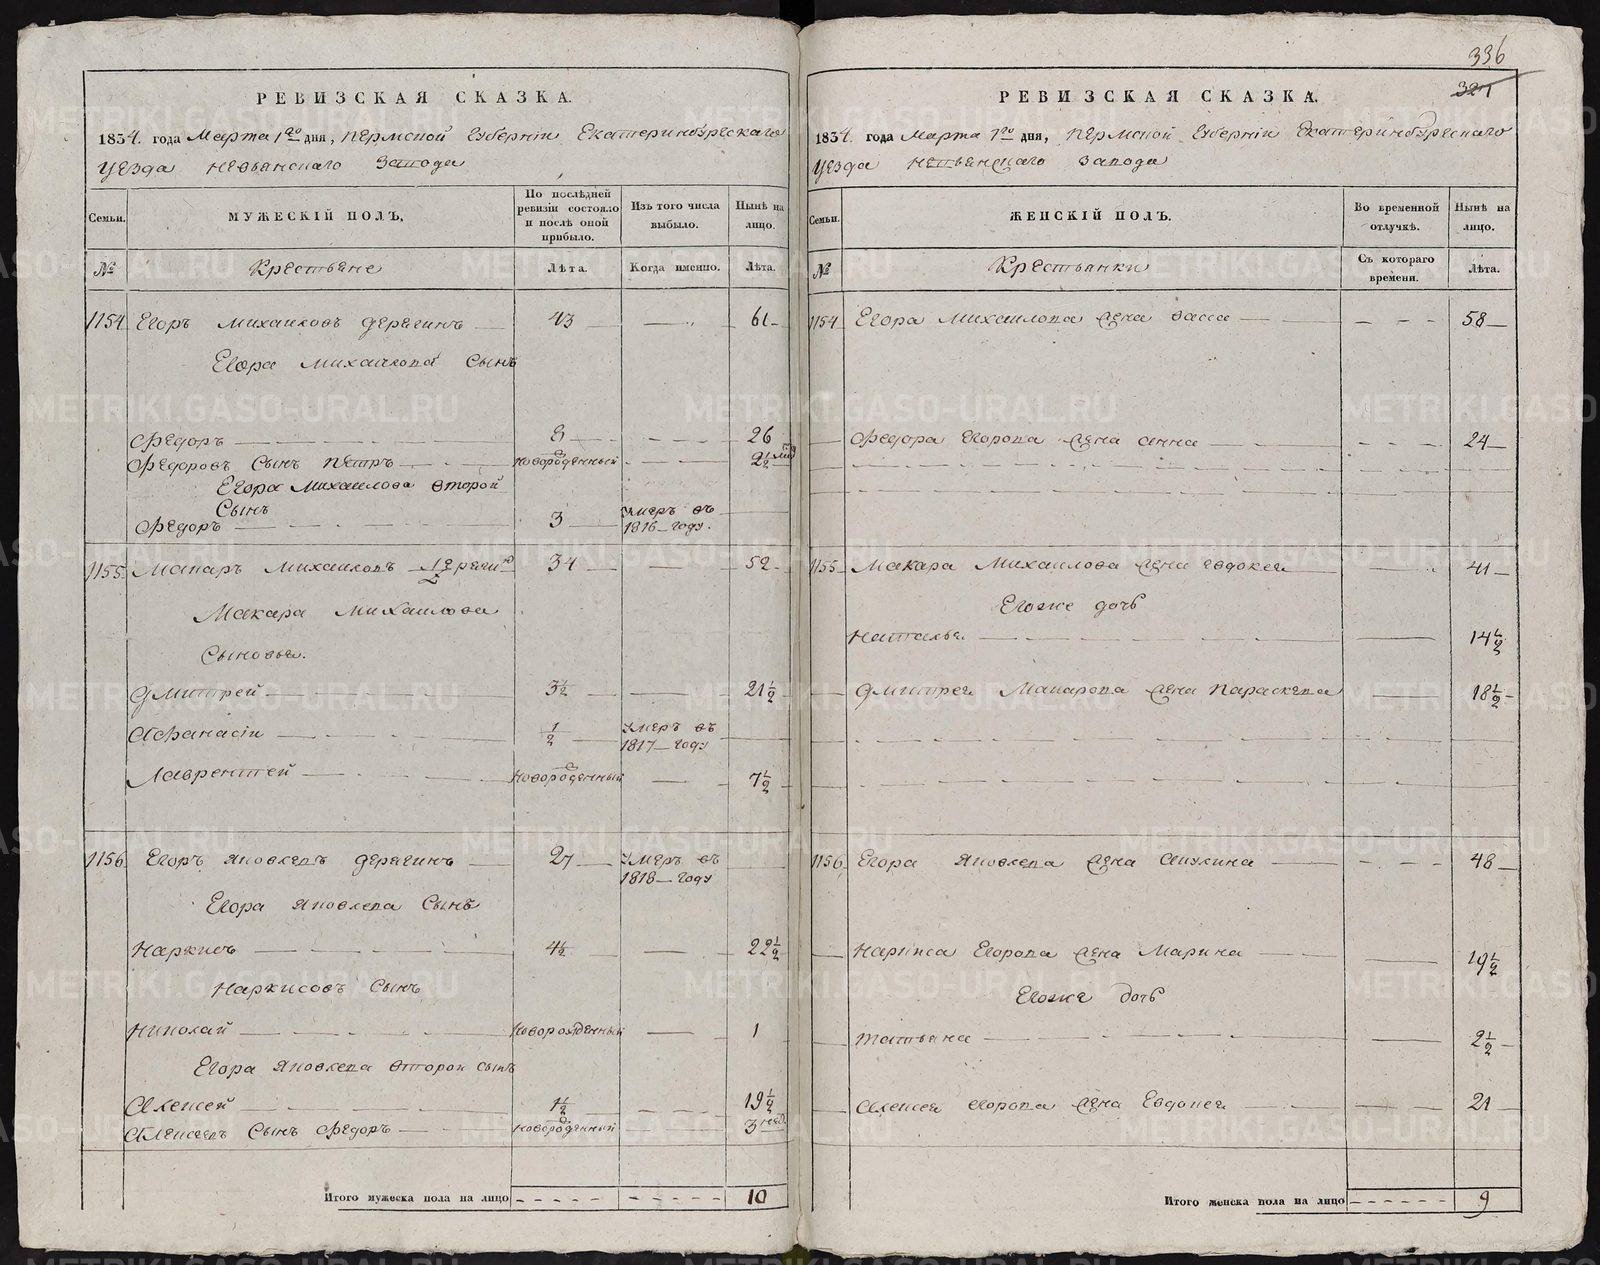 РЕВИЗСКАЯ СКАЗКА.
1834. года Марта 1го дня, Пермской Губернiи Екатеринбургскаго
Уезда Невьянскаго Завода
Семьи. МУЖЕСКIЙ ПОЛЪ. По послѣдней ревизiи состояло и послѣ оной прибыло. Изъ того числа выбыло. Нынѣ на лицо.
№ Крестьяне Лѣта. Когда именно. Лѣта.
1154 Егоръ Михаиловъ Дерягинъ 43 61
Егора Михаилова Сынъ
Федоръ 8 26
Федоровъ Сынъ Петръ новорожденный
Егора Михаилова второй
Сынъ
Федоръ 3 Умеръ въ 1816 году.
1155 Макаръ Михаиловъ Дерягинъ 34 52
Макара Михаилова
Сыновья.
Дмитрей 3½ 21½
Афанасiи ½ Умеръ въ 1817 году
Лаврентей Новорожденный 7½
1156 Егоръ Яковлевъ Дерягинъ 27 Умеръ въ 1818 году
Егора Яковлева Сынъ
Наркисъ 4½ 22½
Наркисовъ Сынъ
Николай Новорожденный 1
Егора Яковлева второй сынъ
Алексей 1½ 19½
Алексеевъ Сынъ Федоръ новорожденный 3 нед
Итого мужеска пола на лицо 10
336
324
РЕВИЗСКАЯ СКАЗКА.
1834. года Марта 1го дня, Пермской Губернiи Екатеринбургскаго
Уезда Невьянскаго Завода
Семьи. ЖЕНСКIЙ ПОЛЪ. Во временной отлучкѣ. Нынѣ на лицо.
№ Крестьянки Съ котораго времени. Лѣта.
1154 Егора Михаилова жена Васса 58
Федора Егорова жена Анна 24
1155 Макара Михаилова жена Евдокея 41
Егоже дочь
Наталья 14½
Дмитрея Макарова жена Параскева 18½
1156 Егора Яковлева жена Акулина 48
Наркиса Егорова жена Марина 19½
Егоже дочь
Татьяна 2½
Алексея Егорова жена Евдокея 21
Итого женска пола на лицо 9
METRIKI.GASO-URAL.RU